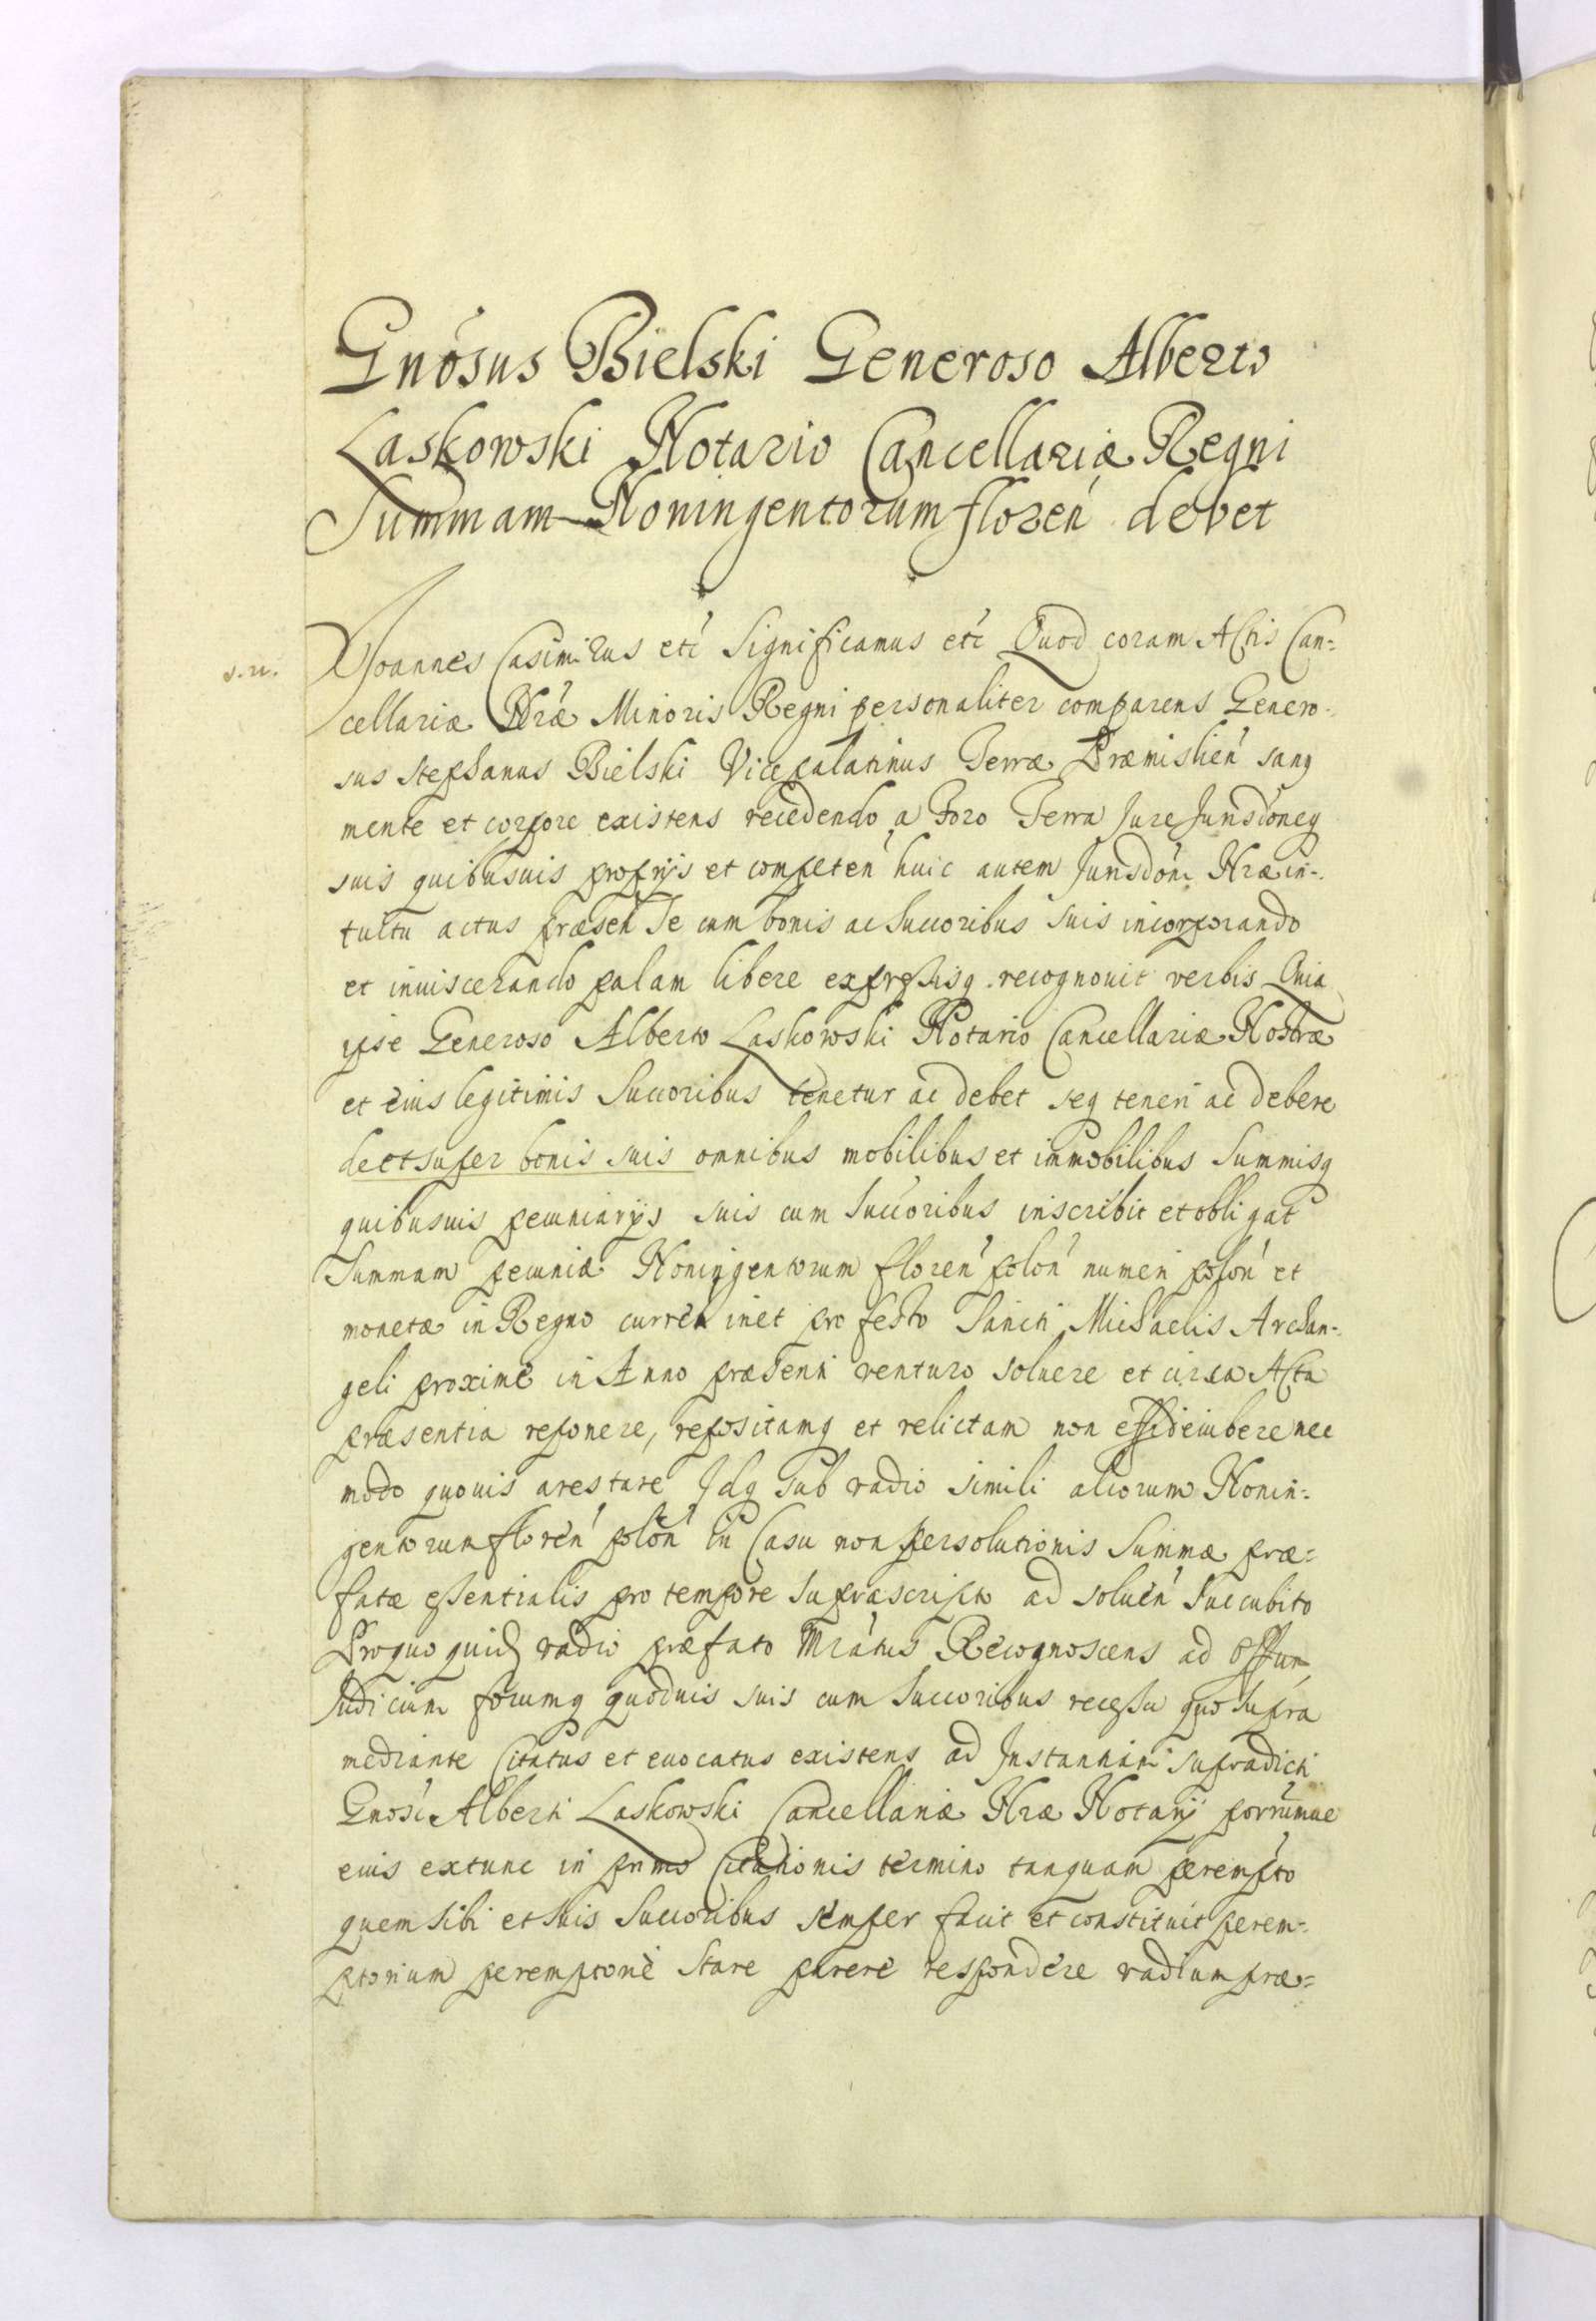 Gnósus Bielski Generoso Alberto
Laskowski Notario Cancellariæ Regni
Summam Noningentorum floren debet
s. n.
Joannes Casimirus etc Significamus etc Quod coram Actis Can=
cellariæ Nræ Minoris Regni personaliter comparens Genero-
sus Stephanus Bielski Vicepalatinus Terræ Præmislien sanq
mente et corpore existens recedendo a Foro Terra Jure Jurisdóneq
suis quibusuis proprijs et competen huic autem Jurisdóni Nræ in-
tuitu actus præsen Se cum bonis ac Succoribus suis incorporando
et inuiscerando palam libere expressisq recognouit verbis Quia
ipse Generoso Alberto Laskowski Notario Cancellariæ Nostræ
et eius legitimis Succoribus tenetur ac debet seq teneri ac debere
de et super bonis suis omnibus mobilibus et immobilibus Summisq
quibusuis pecuniarijs suis cum Succoribus inscribit et obligat
Summam pecuniæ Noningentorum floren polon numeri polon et
monetæ in Regno curren inet pro festo Sancti Michaelis Archan-
geli proximè in Anno præsenti venturo soluere et circa Acta
præsentia reponere, repositamq et relictam non condescendere nec
modo quouis arestare Idq sub vadio simili aliorum Nonin=
gentorum floren polon in Casu non persolutionis Summæ præ=
fatæ essentialis pro tempore suprascripto ad soluen succubito
Pro quo quid vadio præfato Mratus Recognoscens ad
Judicium forumq quoduis suis cum Succoribus recessu quo supra
mediante Citatus et euocatus existens ad Instantiam supradicti
Gnosi Alberti Laskowski Cancellariæ Nræ Notarij
eius extunc in primo Citationis termino tanquam perempto
quem sibi et suis Succoribus semper facit et constituit perem-
ptorium peremptoriè stare parere respondere vadium præ=